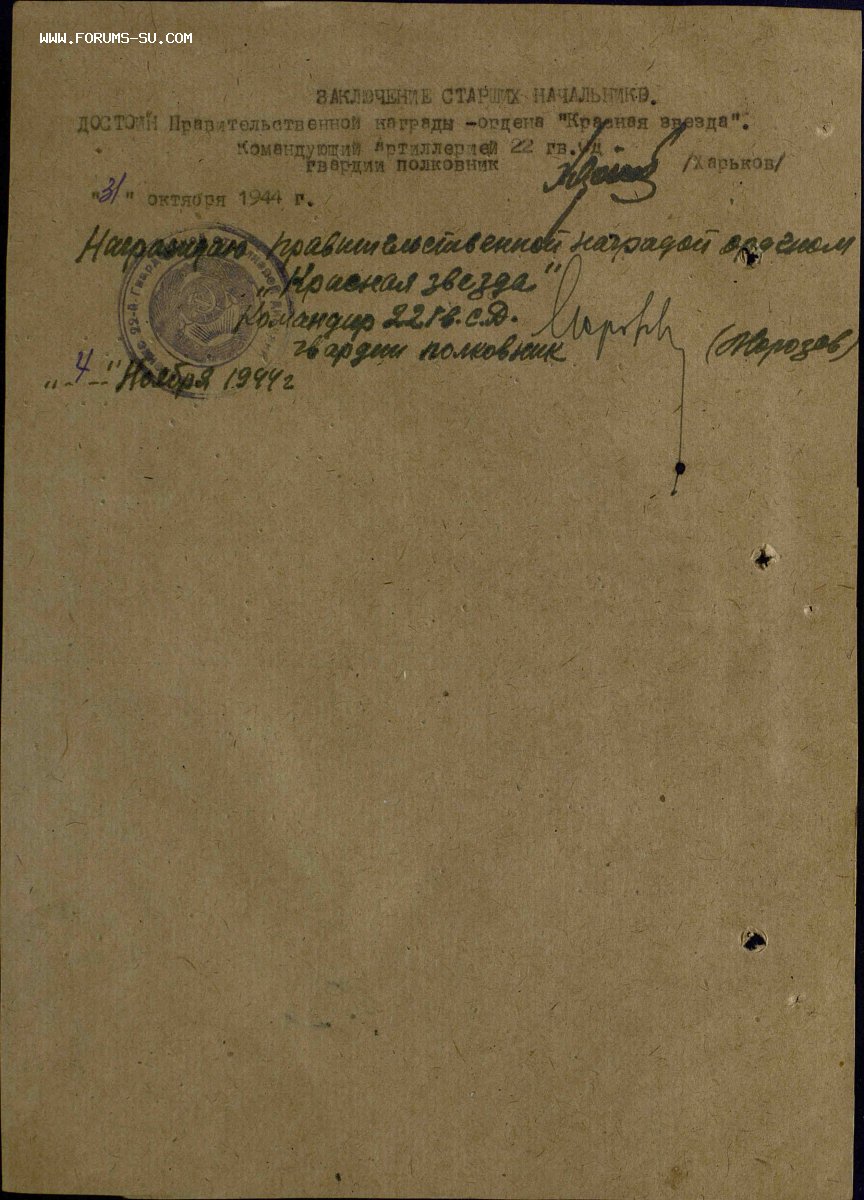 WWW.FORUMS-SU.COM
ЗАКЛЮЧЕНИЕ СТАРШИХ НАЧАЛЬНИКО.
ДОСТОИН Правительственной награды -ордена "Красная звезда".
Командующий артиллерией 22 гв.сд
гвардии полковник /Харьков/
"31" октября 1944 г.
Награждаю правительственной наградой орденом
"Красная звезда"
Командир 22 Гв. с.д.
гвардии полковник (Морозов)
"4" Ноября 1944 г